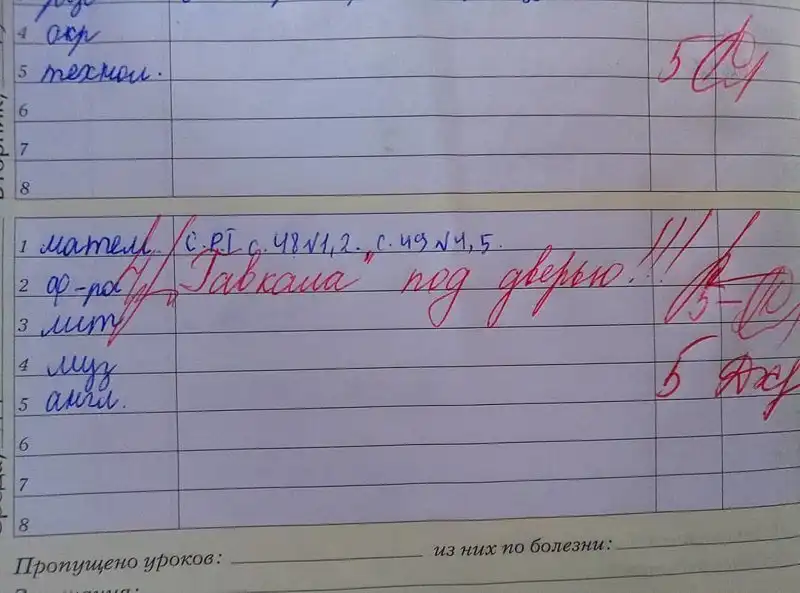 4 окр
5 технол. 5
6
7
8
1 матем. с. РТ с. 48 №1, 2. с. 49 №4, 5.
2 ф-ра "Гавкала" под дверью!!! 5-
3 лит
4 муз 5
5 англ.
6
7
8
Пропущено уроков: из них по болезни: